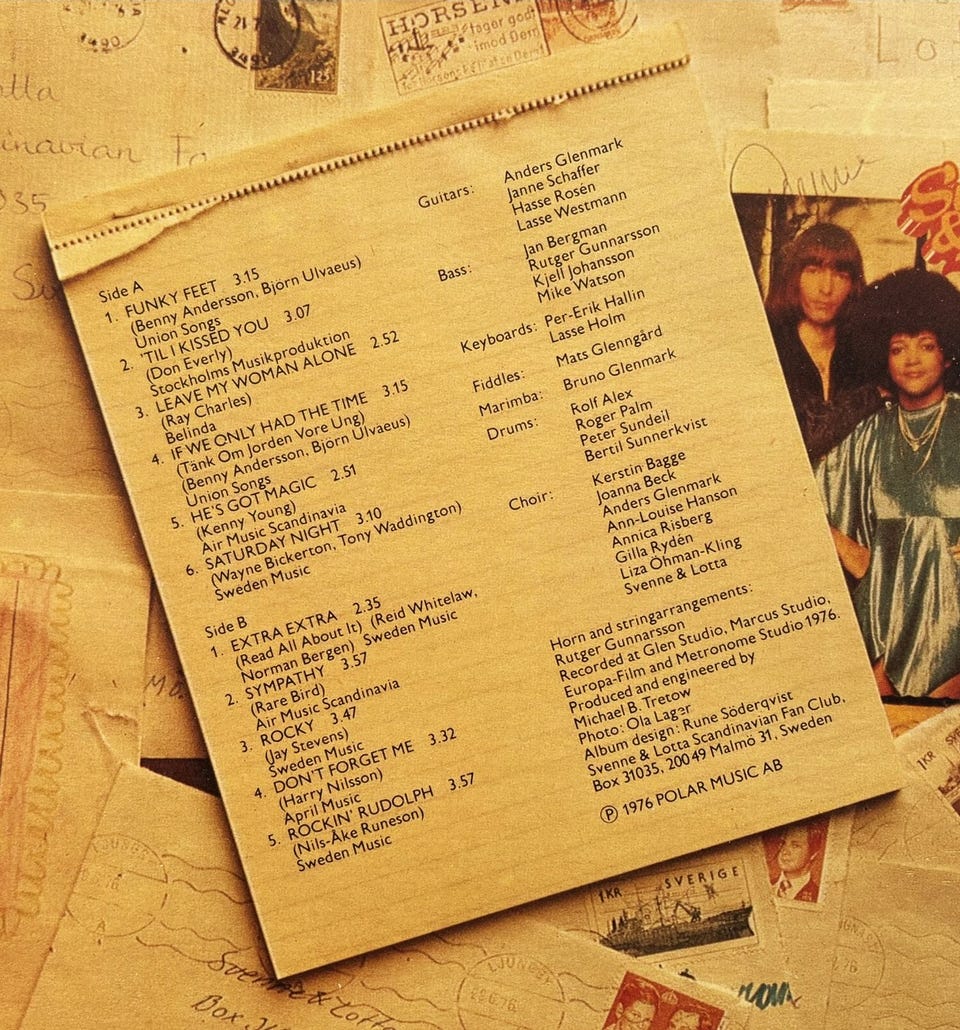 HORSENS
tager godt
imod Dem
3490
125
otta
inavian Fo
035
Lo
Side A
1. FUNKY FEET 3.15
(Benny Andersson, Björn Ulvaeus)
Union Songs
2. 'TIL I KISSED YOU 3.07
(Don Everly)
Stockholms Musikproduktion
3. LEAVE MY WOMAN ALONE 2.52
(Ray Charles)
Belinda
4. IF WE ONLY HAD THE TIME 3.15
(Tänk Om Jorden Vore Ung)
(Benny Andersson, Björn Ulvaeus)
Union Songs
5. HE'S GOT MAGIC 2.51
(Kenny Young)
Air Music Scandinavia
6. SATURDAY NIGHT 3.10
(Wayne Bickerton, Tony Waddington)
Sweden Music
Side B
1. EXTRA EXTRA 2.35
(Read All About It) (Reid Whitelaw,
Norman Bergen) Sweden Music
2. SYMPATHY 3.57
(Rare Bird)
Air Music Scandinavia
3. ROCKY 3.47
(Jay Stevens)
Sweden Music
4. DON'T FORGET ME 3.32
(Harry Nilsson)
April Music
5. ROCKIN' RUDOLPH 3.57
(Nils-Åke Runeson)
Sweden Music
Guitars: Anders Glenmark
Janne Schaffer
Hasse Rosén
Lasse Westmann
Bass: Jan Bergman
Rutger Gunnarsson
Kjell Johansson
Mike Watson
Keyboards: Per-Erik Hallin
Lasse Holm
Fiddles: Mats Glenngård
Marimba: Bruno Glenmark
Drums: Rolf Alex
Roger Palm
Peter Sundeil
Bertil Sunnerkvist
Choir: Kerstin Bagge
Joanna Beck
Anders Glenmark
Ann-Louise Hanson
Annica Risberg
Gilla Rydén
Liza Öhman-Kling
Svenne & Lotta
Horn and stringarrangements:
Rutger Gunnarsson
Recorded at Glen Studio, Marcus Studio,
Europa-Film and Metronome Studio 1976.
Produced and engineered by
Michael B. Tretow
Photo: Ola Lager
Album design: Rune Söderqvist
Svenne & Lotta Scandinavian Fan Club,
Box 31035, 200 49 Malmö 31, Sweden
Ⓟ 1976 POLAR MUSIC AB
S
&
1KR
1KR SVERIGE
LJUNGBY
Svenne & Lotta
Box 31
LJUNGBY